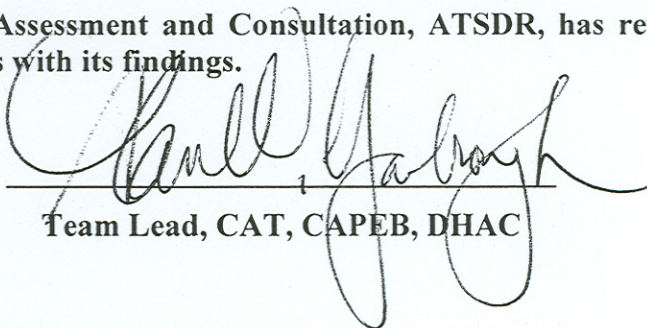 Assessment and Consultation, ATSDR, has re
s with its findings.
Yarbrough
Team Lead, CAT, CAPEB, DHAC